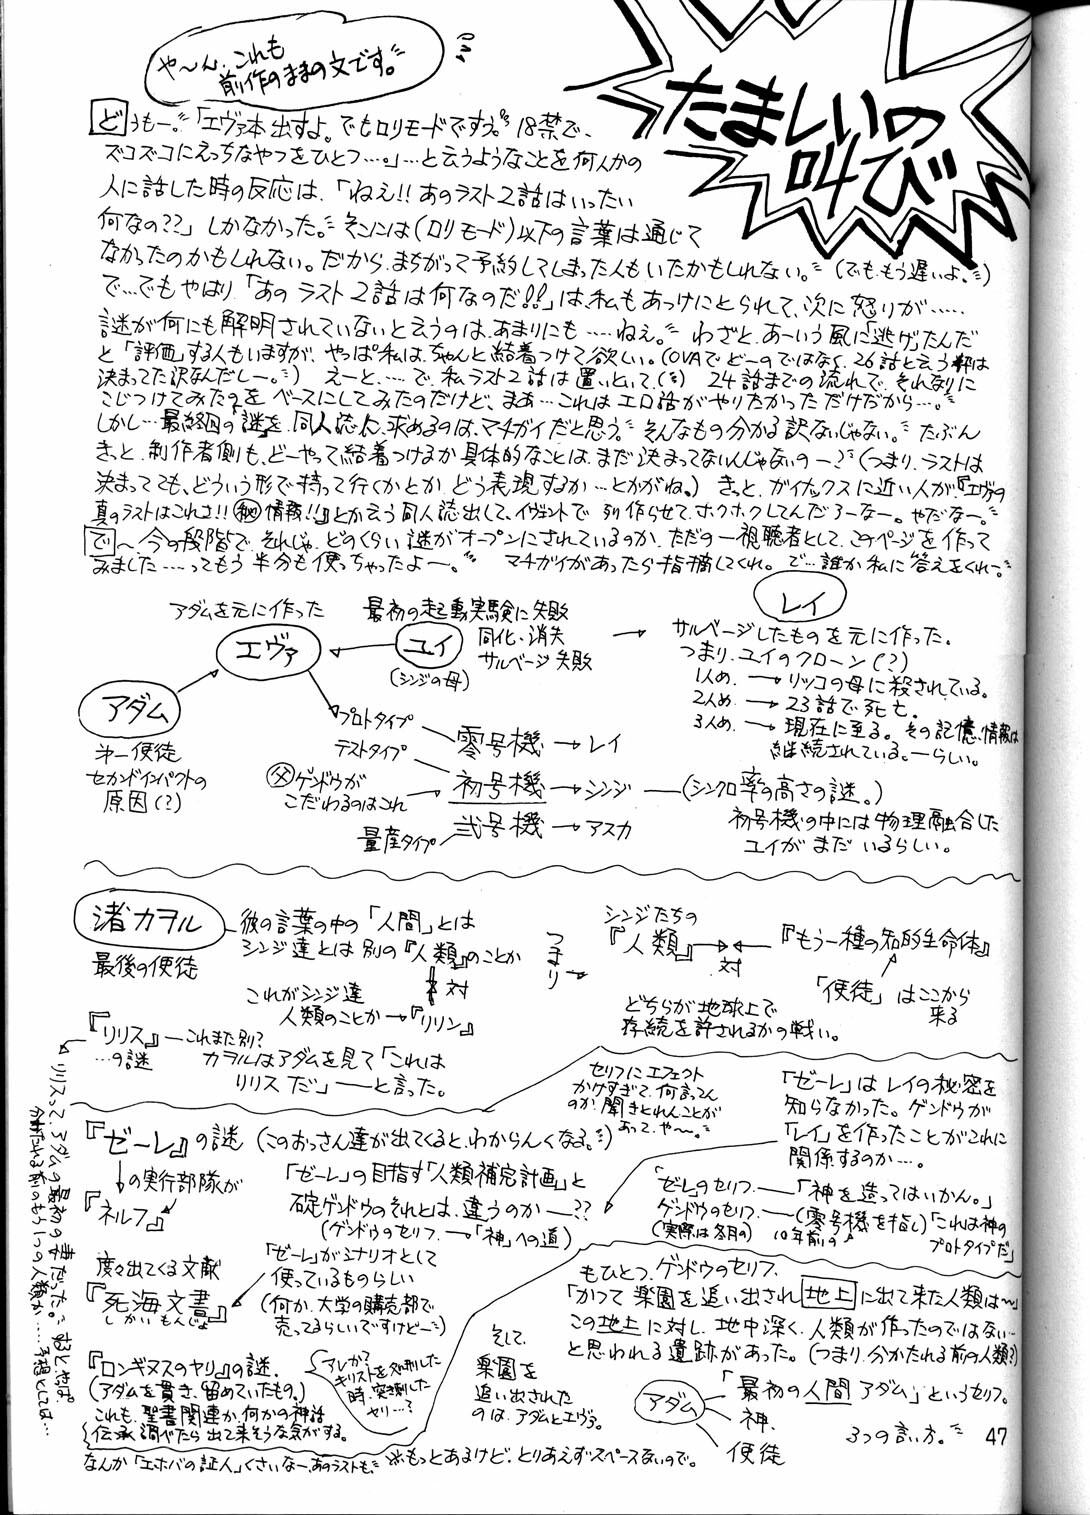 や〜ん、これも
前作のままの文です。
たましいの
叫び
どうもー。「エヴァ本出すよ。でもロリモードですぅ。18禁で、
ズコズコにえっちなやつをひとつ…。」…と云うようなことを何人かの
人に話した時の反応は、「ねえ!!あのラスト2話はいったい
何なの??」しかなかった。そこには(ロリモード)以下の言葉は通じて
なかったのかもしれない。だから、まちがって予約してしまった人もいたかもしれない。(でも、もう遅いよ、)
で…でもやはり「あのラスト2話は何なのだ!!」は、私もあっけにとられて、次に怒りが……
謎が何にも解明されていないと云うのは、あまりにも……ねぇ。わざと、あーいう風に「逃げ」たんだ
と「評価」する人もいますが、やっぱ私は、ちゃんと結着つけて欲しい。(OVAでどーのではなく、26話と云う枠は
決まってた訳なんだしー。)えーと、……で、私ラスト2話は置いといて、24話までの流れで、それなりに
こじつけてみたのをベースにしてみたのだけど、まあ…これはエロ話がやりたかっただけだから…。
しかし…最終回の「謎」を同人誌に求めるのは、マチガイだと思う。そんなもの分かる訳ないじゃない。たぶん
きっと、制作者側も、どーやって結着つけるか具体的なことは、まだ決まってないんじゃないの〜?(つまり、ラストは
決まってても、どういう形で持って行くかとか、どう表現するか…とかがね。)きっと、ガイナックスに近い人が『エヴァの
真のラストはこれさ!!㊙情報!!』とか云う同人誌出して、イヴェントで列作らせて、ホクホクしてんだろーなー。やだなー。
で〜、今の段階で、それじゃ、どのくらい謎がオープンにされているのか、ただの一視聴者として、このページを作って
みました……ってもう半分も使っちゃったよー。マチガイがあったら指摘してくれ。で…誰か私に答えをくれー。
アダムを元に作った
エヴァ
最初の起動実験に失敗
ユイ
同化、消失
サルベージ失敗
(シンジの母)
レイ
サルベージしたものを元に作った。
つまり、ユイのクローン(?)
1人め、→リツコの母に殺されている。
2人め、→23話で死亡。
3人め、→現在に至る。その記憶、情報は
継続されている。―らしい。
アダム
第一使徒
セカンドインパクトの
原因(?)
プロトタイプ
零号機→レイ
テストタイプ
父ゲンドウが
こだわるのはこれ
初号機→シンジ―(シンクロ率の高さの謎。)
初号機の中には物理融合した
ユイがまだいるらしい。
量産タイプ
弐号機→アスカ
渚カヲル
最後の使徒
彼の言葉の中の「人間」とは
シンジ達とは別の『人類』のことか
対
これがシンジ達
人類のことか→『リリン』
つまり→
シンジたちの
『人類』
対
『もう一種の知的生命体』
「使徒」はここから
来る
どちらが地球上で
存続を許されるかの戦い。
『リリス』―これまた別?
…の謎
カヲルはアダムを見て「これは
リリスだ」―と言った。
リリスって、アダムの最初の妻だった。するとやっぱ、
分かたれる前のもう1つの人類か……予想としては…
『ゼーレ』の謎(このおっさん達が出てくると、わからんくなる。)
の実行部隊が
『ネルフ』
セリフにエフェクト
かけすぎて、何言ってん
のか聞きとれんことが
あって、や〜。
「ゼーレ」の目指す「人類補完計画」と
碇ゲンドウのそれとは、違うのか―??
(ゲンドウのセリフ―「神」への道)
「ゼーレ」はレイの秘密を
知らなかった。ゲンドウが
「レイ」を作ったことがこれに
関係するのか…。
「ゼーレ」のセリフ―「神を造ってはいかん。」
ゲンドウのセリフ―(零号機を指し)「これは神の
プロトタイプだ」
(実際は冬月の)
10年前の
度々出てくる文献
『死海文書』
しかいもんじょ
「ゼーレ」がシナリオとして
使っているものらしい
(何か、大学の購売部で
売ってるらしいですけどー)
『ロンギヌスのヤリ』の謎、
(アダムを貫き、留めていたもの。)
これも、聖書関連か、何かの神話
伝承調べたら出て来そうな気がする。
アレが?
キリストを処刑した
時、突き刺した
ヤリ…?
もひとつ、ゲンドウのセリフ、
「かつて楽園を追い出され地上に出て来た人類は〜」
この地上に対し、地中深く、人類が作ったのではない…
と思われる遺跡があった。(つまり、分かたれる前の人類?)
そして、
楽園を
追い出された
のは、アダムとエヴァ。
アダム
「最初の人間アダム」というセリフ。
神
使徒
3つの言い方。
なんか「エホバの証人」くさいなー、あのラストも、
※もっとあるけど、とりあえずスペースないので。
47